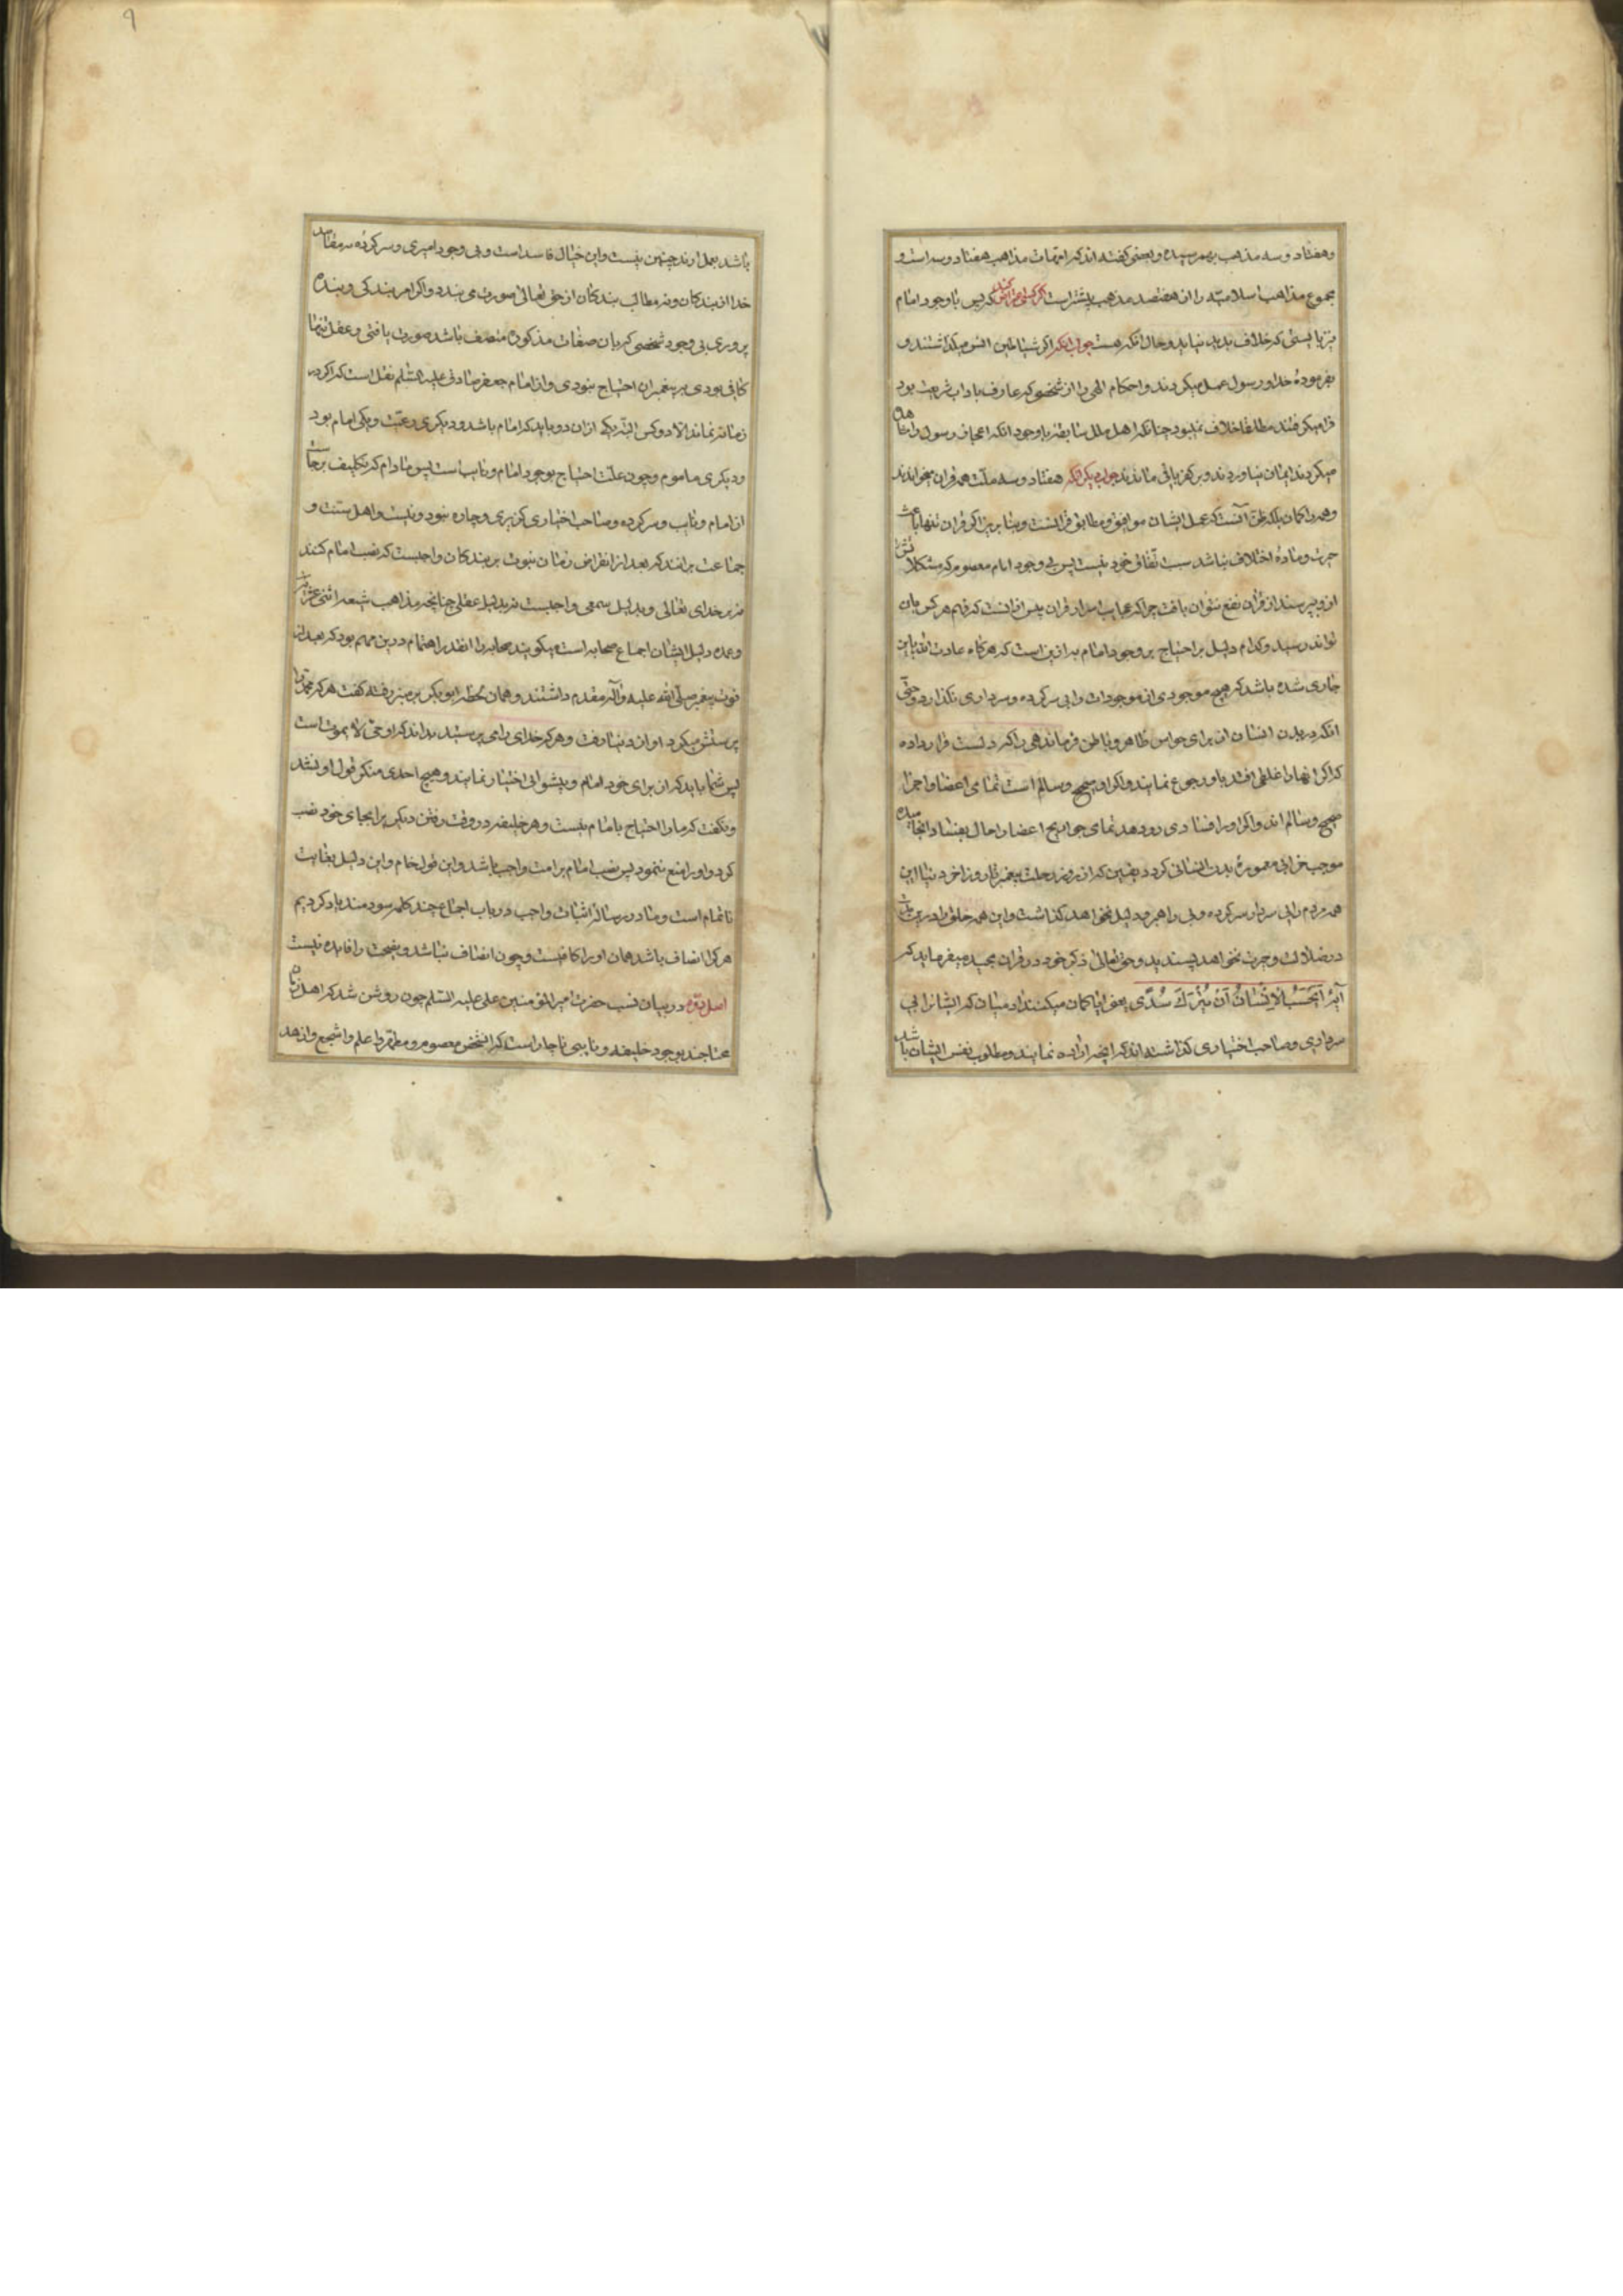 وهفتاد و سه مذهب بهم رسیده و بعضی کفته اند که امّهات مذاهب هفتاد و سه است و
مجموع مذاهب اسلامیّه را از هفتصد مذهب بیشتر است اکر کسی اعتراض کند که پس با وجود امام
نیز بایستی که خلاف پدید نیاید و حال آنکه هست جواب آنکه اکر شیاطین انس میکذاشتند و
بفرمودهٔ خدا و رسول عمل میکردند و احکام الهی را از شخصی که عارف باداب شریعت بود
فرا میکرفتند مطلقا خلاف نمیبود چنانکه اهل ملل سابقه با وجود انکه اعجاز رسول را مشاهده
میکردند ایمان نیاوردند و بر کفر باقی ماندند جواب دیکر آنکه هفتاد و سه ملّت همه قران میخوانند
و همه را کمان بلکه ظنّ آنست که عمل ایشان موافق و مطابق قرانست و بنابرین اکر قران تنها باعث
حیرت و مادهٔ اختلاف نباشد سبب اتّفاق خود نیست پس بی وجود امام معصوم که مشکلات
ازو بپرسند از قران نفع نتوان یافت چرا که عجایب اسرار قران بیش از انست که فهم هر کس بان
تواند رسید و کدام دلیل بر احتیاج بر وجود امام به ازین است که هرکاه عادت الله باین
جاری شده باشد که هیچ موجودی از موجودات را بی سرکرده و سرداری نکذارد و حتّی
انکه در بدن انسان از برای حواس ظاهر و باطن فرماندهی را که دلست قرار داده
که اکر انها را غلطی افتد باو رجوع نمایند و اکر او صحیح و سالم است تمامی اعضا و اجزا
صحیح و سالم اند و اکر او را فسادی رو دهد تمامی جوارح و اعضا را حال بفساد انجامیده
موجب خرابی معمورهٔ بدن انسانی کردد یقین که از روز رحلت پیغمبر تا روز اخر دنیا این
همه مردم را بی سردار و سرکرده و بی راهبر و دلیل نخواهد کذاشت و این همه خلق را درین مدّت
در ضلالت و حیرت نخواهد پسندید و حق تعالی ذکر خود در قران مجید میفرماید که
آیهٔ اَیَحْسَبُ الْاِنْسَانُ اَنْ یُتْرَكَ سُدًی یعنی ایا کمان میکنند ادمیان که ایشانرا بی
سرداری و صاحب اختیاری کذاشته اند که انچه اراده نمایند و مطلوب نفس ایشان باشد
باشد بعمل اورند چنین نیست و این خیال فاسد است و بی وجود امیری و سرکردهٔ نه مقاصد
خدا از بندکان و نه مطالب بندکان از حق تعالی صورت می بندد و اکر امر بندکی و بنده
پروری بی وجود شخصی که بان صفات مذکوره متصف باشد صورت یافتی و عقل تنها
کافی بودی به پیغمبران احتیاج نبودی و از امام جعفر صادق علیه السّلم نقل است که اکر در
زمانه نماند الا دو کس البتّه یکی ازان دو باید که امام باشد و دیکری رعیّت و یکی امام بود
و دیکری ماموم و چون علّت احتیاج بوجود امام و نایب است پس مادام که تکلیف برجاست
از امام و نایب و سرکرده و صاحب اختیاری کزیری و چاره نبود و نیست و اهل سنّت و
جماعت برانند که بعد از انقراض زمان نبوت بر بندکان واجبست که نصب امام کنند
نه بر خدای تعالی و بدلیل سمعی واجبست نه بدلیل عقلی چنانچه مذاهب شیعه اثنی عشریه
و عمده دلیل ایشان اجماع صحابه است میکویند صحابه را انقدر اهتمام درین مهم بود که بعد از
فوت پیغمبر صلّی الله علیه و آله مقدم داشتند و همان لحظه ابو بکر بر منبر رفته کفت هر که محمد را
پرستش میکرد او از دنیا رفت و هر که خدای را می پرستید بداند که او حیّ لا یموت است
پس شما باید که از برای خود امام و پیشوائی اختیار نمایند و هیچ احدی منکر قول او نشد
و نکفت که ما را احتیاج بامام نیست و هر خلیفه در وقت رفتن دیکری را بجای خود نصب
کرد و او را منع ننمود پس نصب امام بر امت واجب باشد و این قول خام و این دلیل بغایت
ناتمام است و ما در رسالهٔ اثبات واجب در باب اجماع چند کلمه سودمند یاد کردیم
هر کرا انصاف باشد همان او را کافیست و چون انصاف نباشد و نصیحت را فایده نیست
اصل دوّم در بیان نسب حضرت امیر المؤمنین علی علیه السّلم چون روشن شد که اهل زمان
محتاجند بوجود خلیفه و نایبی ناچار است که انشخص معصوم و مطهّر و اعلم و اشجع و ازهد